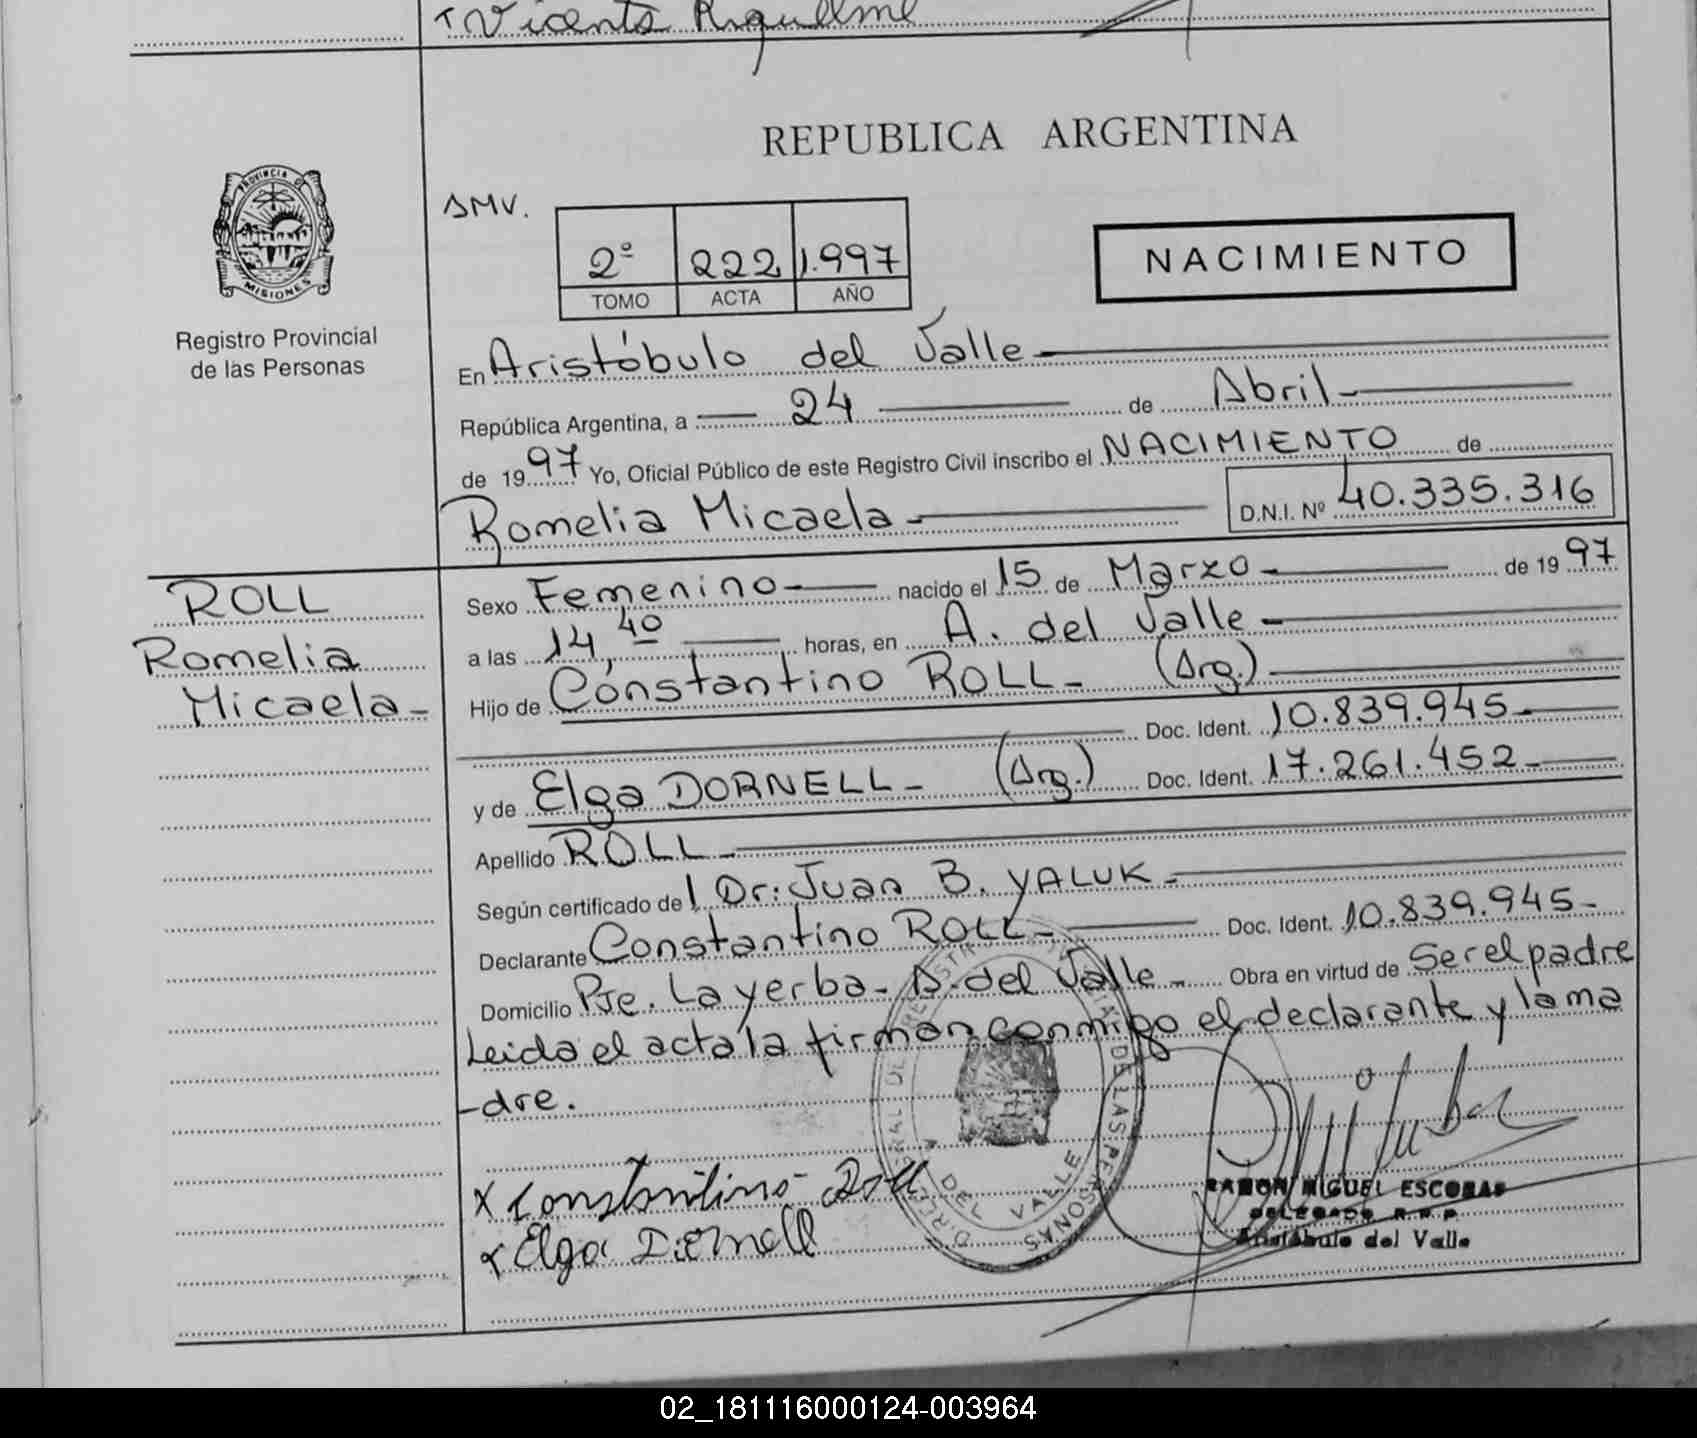 Vicente Riquelme
REPUBLICA ARGENTINA
PROVINCIA DE
MISIONES
Registro Provincial
de las Personas
AMV.
2º 222 1.997
TOMO ACTA AÑO
NACIMIENTO
En Aristóbulo del Valle
República Argentina, a 24 de Abril
de 1997 Yo, Oficial Público de este Registro Civil inscribo el NACIMIENTO de
Romelia Micaela D.N.I. Nº 40.335.316
ROLL
Romelia
Micaela
Sexo Femenino nacido el 15 de Marzo de 1997
a las 14,40 horas, en A. del Valle
Hijo de Constantino ROLL (Arg.)
Doc. Ident. 10.839.945
y de Elga DORNELL (Arg.) Doc. Ident. 17.261.452
Apellido ROLL
Según certificado del Dr: Juan B. YALUK
Declarante Constantino ROLL Doc. Ident. 10.839.945
Domicilio Pje. La yerba - A. del Valle Obra en virtud de Ser el padre
Leida el acta la firman conmigo el declarante y la ma
-dre.
x Constantino Roll
x Elga Dornell
DEL VALLE
DE LAS PERSONAS
RAMON MIGUEL ESCOBAR
DELEGADO R.R.P.
Aristóbulo del Valle
02_181116000124-003964